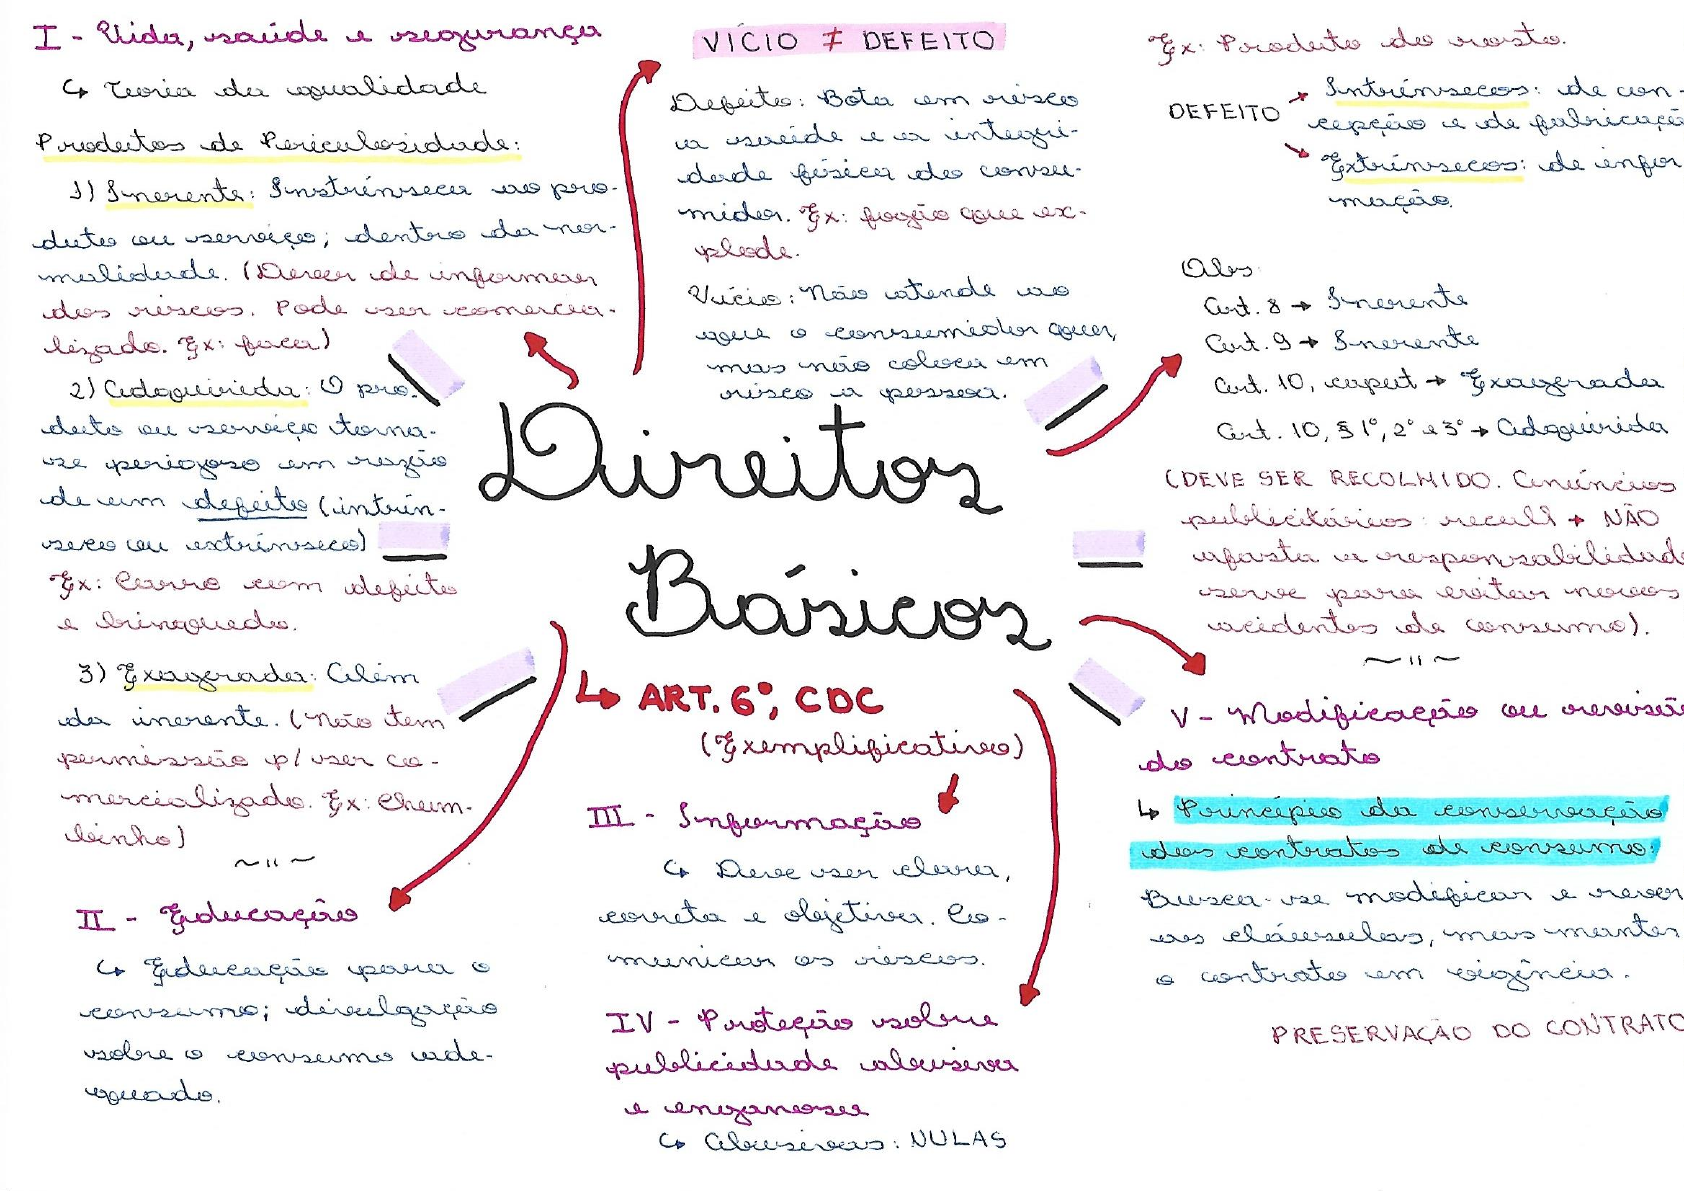 I - Vida, saúde e segurança
↳ Teoria da qualidade
Produtos de Periculosidade:
1) Inerente: Instrínseca ao pro-
duto ou serviço; dentro da nor-
malidade. (Dever de informar
dos riscos. Pode ser comercia-
lizado. Ex: faca)
2) Adquirida: O pro-
duto ou serviço torna-
se perigoso em razão
de um defeito (intrín-
seco ou extrínseco)
Ex: Carro com defeito
e brinquedo.
3) Exagerada: Além
da inerente. (Não tem
permissão p/ ser co-
mercializado. Ex: Chum-
binho)
~ " ~
II - Educação
↳ Educação para o
consumo; divulgação
sobre o consumo ade-
quado.
VÍCIO ≠ DEFEITO
Defeito: Bota em risco
a saúde e a integri-
dade física do consu-
midor. Ex: fogão que ex-
plode.
Vício: Não atende ao
que o consumidor quer,
mas não coloca em
risco a pessoa.
Direitos
Básicos
↳ ART. 6º, CDC
(Exemplificativo)
III - Informação
↳ Deve ser clara,
correta e objetiva. Co-
municar os riscos.
IV - Proteção sobre
publicidade abusiva
e enganosa
↳ Abusivas: NULAS
Ex: Produto do rosto.
DEFEITO → Intrínsecos: de con-
cepção e de fabricaçã
→ Extrínsecos: de infor
mação.
Obs:
Art. 8 → Inerente
Art. 9 → Inerente
Art. 10, caput → Exagerada
Art. 10, § 1º, 2º e 3º → Adquirida
(DEVE SER RECOLHIDO. Anúncios
publicitários: recall → NÃO
afasta a responsabilidad
serve para evitar novos
acidentes de consumo).
~ " ~
V - Modificação ou revisã
do contrato
↳ Princípio da conservação
dos contratos de consumo:
Busca-se modificar e rever
as cláusulas, mas manter
o contrato em vigência.
PRESERVAÇÃO DO CONTRATO